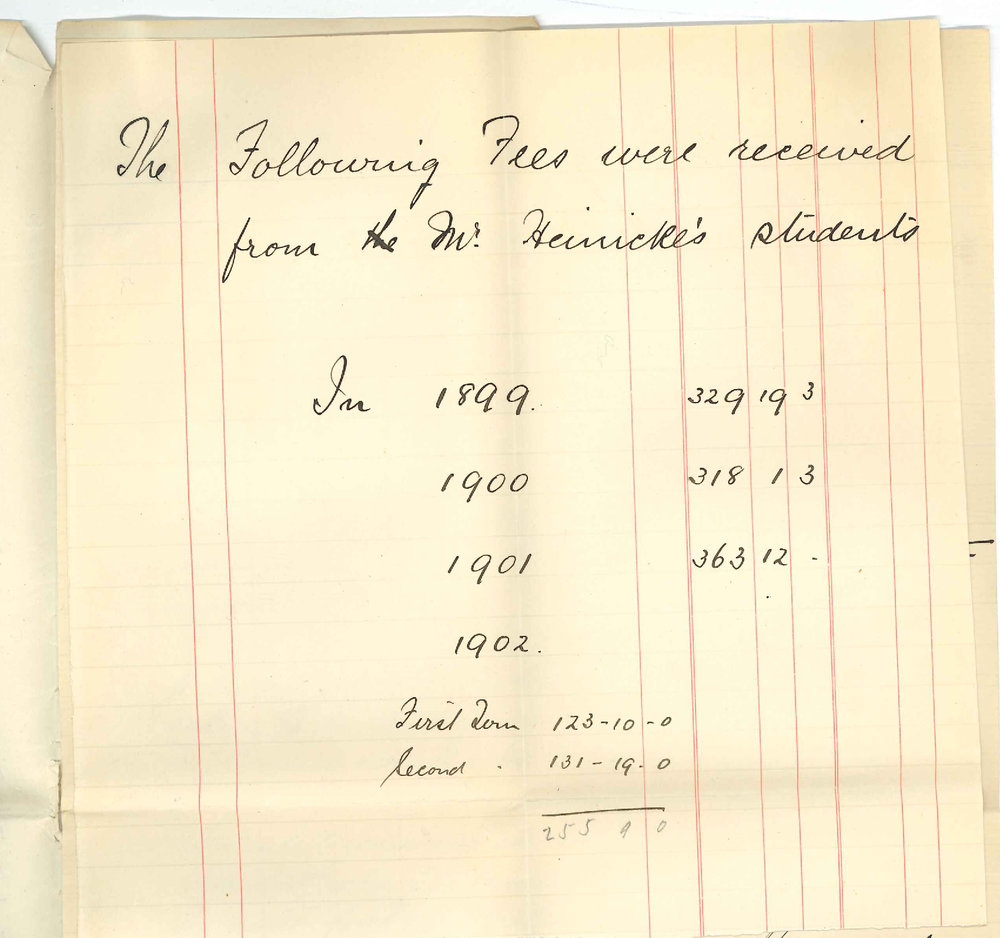 The Following Fees were received
from the Mr. Heinicke's students
In 1899. 329 19 3
1900 318 1 3
1901 363 12 -
1902.
First Term 123-10-0
Second . 131-19-0
255 9 0